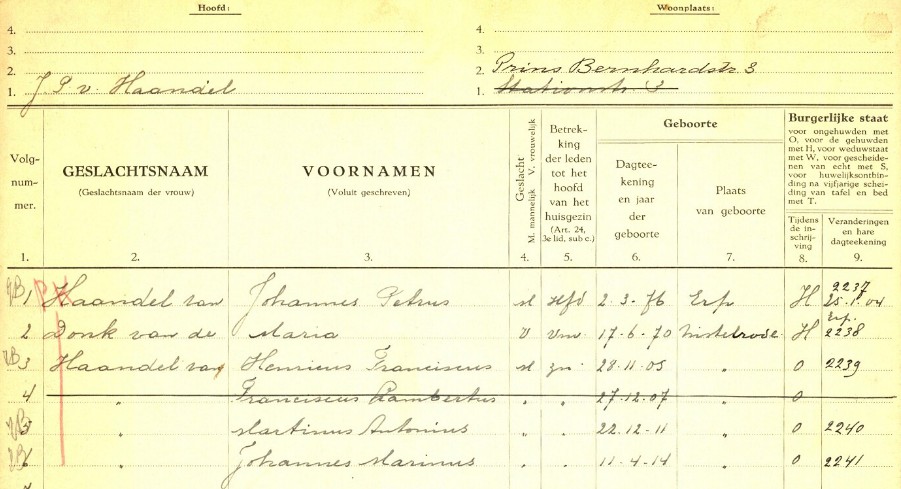 Hoofd: Woonplaats:
4. 4.
3. 3.
2. 2. Prins Bernhardstr. 3
1. J. P. v. Haandel 1. Stationstr. 3
Volg-nummer. GESLACHTSNAAM (Geslachtsnaam der vrouw) VOORNAMEN (Voluit geschreven) Geslacht M. mannelijk V. vrouwelijk Betrekking der leden tot het hoofd van het huisgezin (Art. 24, 3e lid, sub c.) Geboorte Dagteekening en jaar der geboorte Plaats van geboorte Burgerlijke staat voor ongehuwden met O, voor de gehuwden met H, voor weduwstaat met W, voor gescheidenen van echt met S, voor huwelijksontbinding na vijfjarige scheiding van tafel en bed met T. Tijdens de inschrijving Veranderingen en hare dagteekening
1. 2. 3. 4. 5. 6. 7. 8. 9.
1 Haandel van Johannes Petrus M Hfd 2-3-76 Erp H 2237 25.1.04 Erp.
2 Donk van de Maria V Vrw 17-6-70 Nistelrode H 2238
3 Haandel van Henricus Franciscus M zn 28-11-05 " O 2239
4 " Franciscus Lambertus " " 27-12-07 " O
5 " Martinus Antonius " " 22-12-11 " O 2240
6 " Johannes Marinus " " 11-4-14 " O 2241